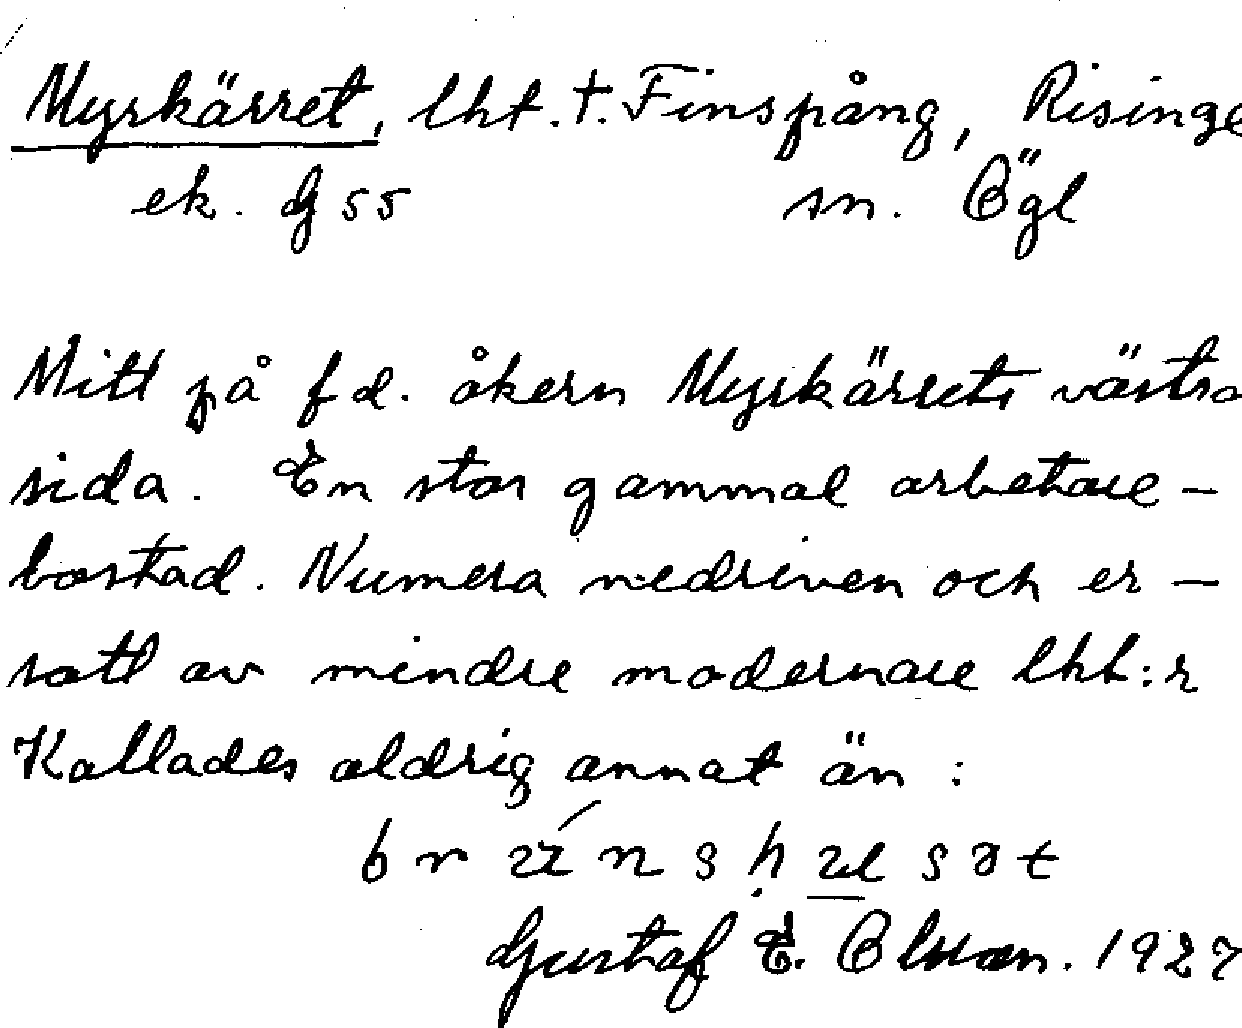 Myrkärret, lht. t. Finspång, Risinge
ek. G 55 sn. Ögl
Mitt på f d. åkern Myrkärrets västra
sida. En stor gammal arbetare-
bostad. Numera nedriven och er-
satt av mindre modernare lht:r
Kallades aldrig annat än :
Gustaf E. Olsson. 1927